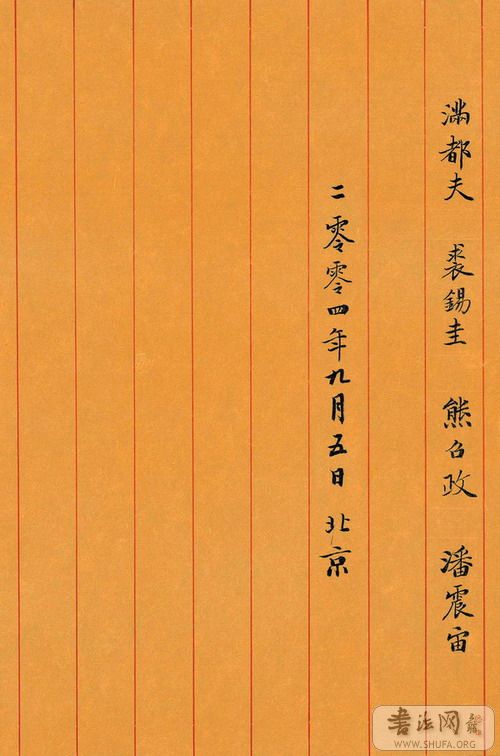 满都夫 裘锡圭 熊召政 潘震宙
二零零四年九月五日 北京
书法网
WWW.SHUFA.ORG